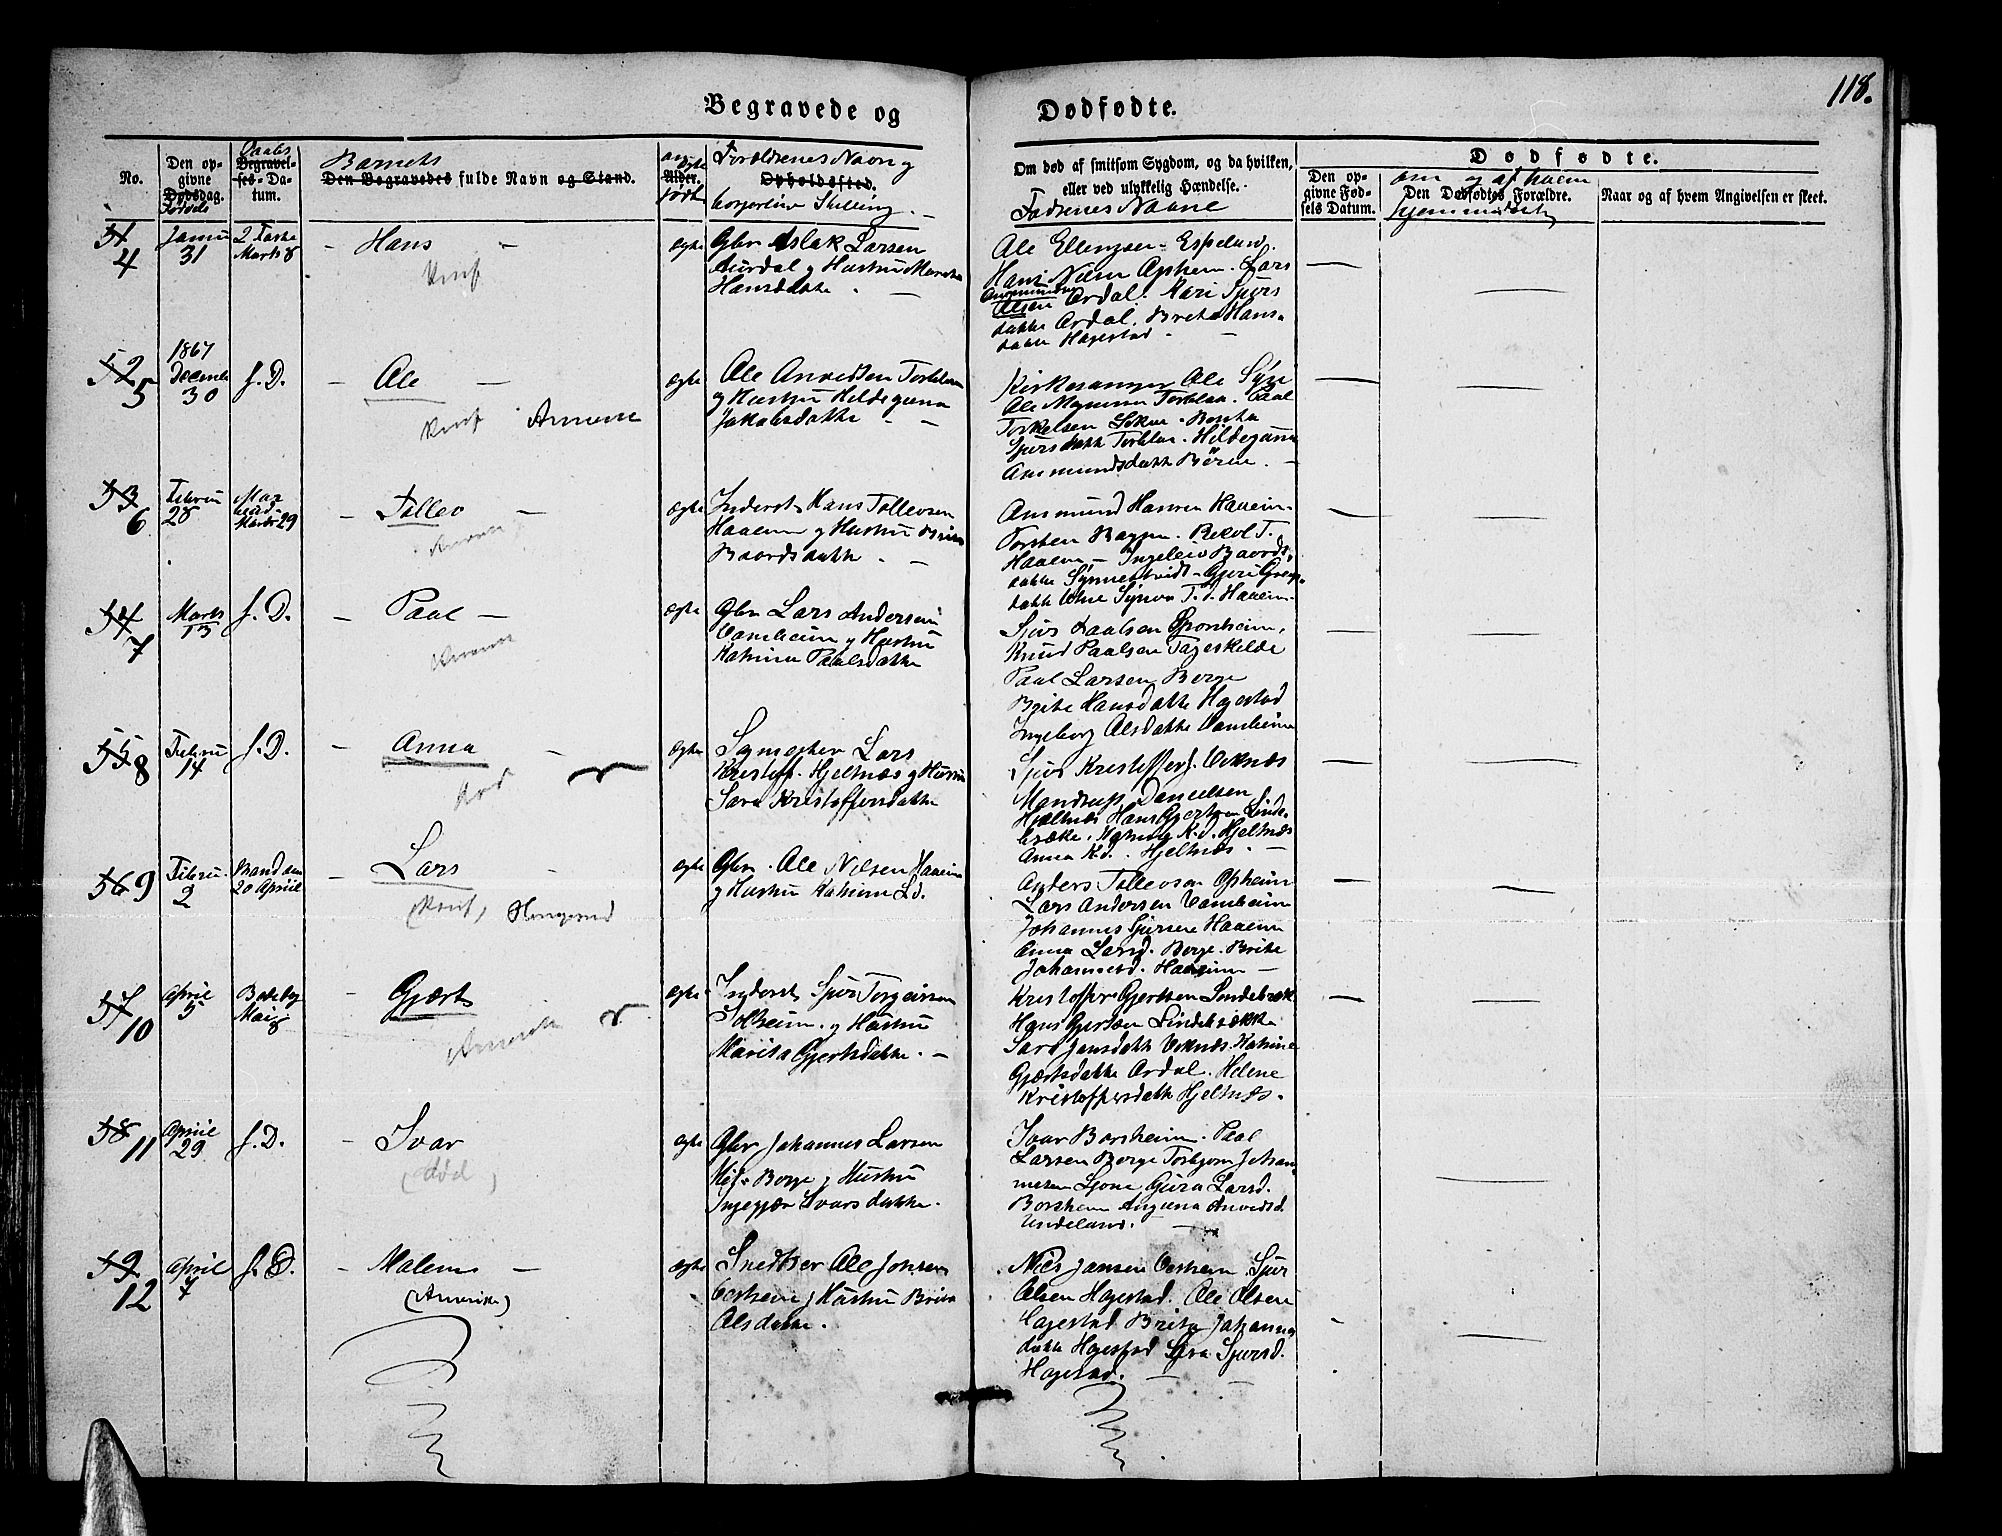 118.
Begravede og Dødfødte.
No.
Den op-
givne
Dødsdag.
Daabs
Begravel-
ses- Da-
tum.
Barnets
Den Begravedes fulde Navn og Stand.
Alder.
Forældrenes Navn og
Opholdssted.
borgerlige Stilling.
Om død af smitsom Sygdom, og da hvilken,
eller ved ulykkelig Hændelse.
Fadrenes Navne
Dødfødte.
Den op-
givne Fød-
sels Datum.
om og af hvem
Den Dødfødtes Forældre.
hjemmedøbt
Naar og af hvem Angivelsen er skeet.
51
4
Janu
31
2 Faste
Marts 8
Hans
ægte
Gbr Aslak Larsen
Aurdal og Hustru Marita
Hansdatter
Ole Ellingsen Espeland.
Hans Nilsen Opheim. Lars
Aamundsen
Olsen Ordal. Kari Sjurs
datter Ordal. Brita Hans-
datter Hagestad
52
5
1867
Decemb
30
s. D.
Ole
ægte
Ole Anvidsen Torblaa
og Hustru Hildegunna
Jakobsdatter
Kirkesanger Ole Syse
Ole Magnusen Torblaa. Paal
Torkelsen
Sjursdatter Torblaa. Hildegunna
Aamundsdatter
53
6
Februar
28
Mar
bud
Marts 29
Tollev
ægte
Inderst Hans Tollevsen
Haaeim og Hustru Brita
Baardsdatter
Aamund Hansen Haaeim
Torsten
Haaeim Ingeleiv Baards-
datter
datter Utne Synva T. d. Haaeim
54
7
Marts
13
s. D.
Paal
ægte
Gbr Lars Andersen
Vambeim og Hustru
Katrina Paalsdatter
Sjur Paalsen
Knud Paalsen
Paal Larsen Berge
Brita Hansdatter Hagestad
Ingeborg Olsdatter Vambeim
55
8
Februar
14
s. D.
Anna
død
ægte
Lars
Kristoff. Hjeltnæs og Hustru
Sara Kristoffersdatter
Sjur Kristoffers. Viknæs
Mandrup Danielsen
Hjeltnæs Hans Gjertsen Linde-
brække. Katrina K.d. Hjeltnæs
Anna K.d. Hjeltnæs.
56
9
Februar
2
Mand den
20 April
Lars
ægte
Gbr. Ole Nilsen Haaeim
og Hustru Katrina L.d.
Anders Tollevsen Opheim
Lars Andersen Vambeim
Johannes Sjursen Haaeim
Anna Larsd. Berge. Brita
Johannesd. Haaeim
57
10
April
5
Bededag
Mai 8
Gjært
ægte
Inderst Sjur Torgeirsen
Solheim og Hustru
Marita Gjertsdatter.
Kristoffer Gjertsen Lindebrække
Hans Gjertsen Lindebrække
Sara Jansdatter Viknæs. Katrina
Gjærtsdatter Ordal. Helene
Kristoffersdatter Hjeltnæs.
58
11
April
29
s. D.
Ivar
(død)
ægte
Gbr Johannes Larsen
Berge og Hustru
Ingegjær Ivarsdatter.
Ivar Borsheim. Paal
Larsen Berge Torbjørn Johan-
nesen Ljone Gura Larsd.
Borsheim Anvidsd.
Undeland.
59
12
April
7
s. D.
Malene
(Amerika)
ægte
Snedker Ole Jonsen
og Hustru Brita
Olsdatter.
Nils Jansen Sjur
Olsen Hagestad. Ole Olsen
Hagestad Brita Johannes
datter Hagestad Sjursd.
Hagestad.